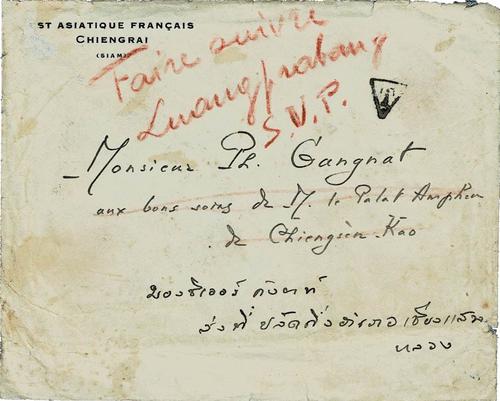 ST ASIATIQUE FRANÇAIS
CHIENGRAI
(SIAM)
Faire suivre
Luangprabang
S.V.P.
T
Monsieur Ph. Gangnat
aux bons soins de M. le Palat Ampheu
de Chiengsèn Kao
มองซิเออร์ กังนาท์
ส่งที่ ปลัดกิ่งอำเภอเชียงแสน
หลวง